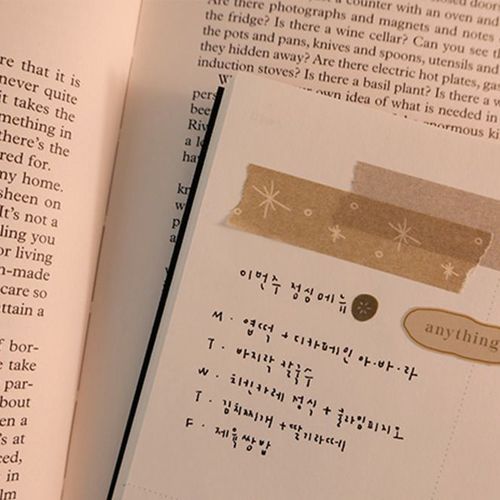 a counter with an oven and
Are there photographs and magnets and notes
the fridge? Is there a wine cellar? Can you see
the pots and pans, knives and spoons, utensils and
they hidden away? Are there electric hot plates, gas
induction stoves? Is there a basil plant? Is there a
own idea of what is needed in
enormous
re that it is
never quite
it takes the
mething in
there's the
red for.
my home.
sheen on
It's not a
ling you
or living
n-made
care so
attain a
f bor-
e take
par-
bout
en a
's at
ced,
in
ilm
이번주 점심메뉴
M. 엽떡 + 디카페인 아·바·라
T. 바지락 칼국수
W. 치킨카레 정식 + 쿨라임피지오
T. 김치찌개 + 딸기라떼
F. 제육쌈밥
anything